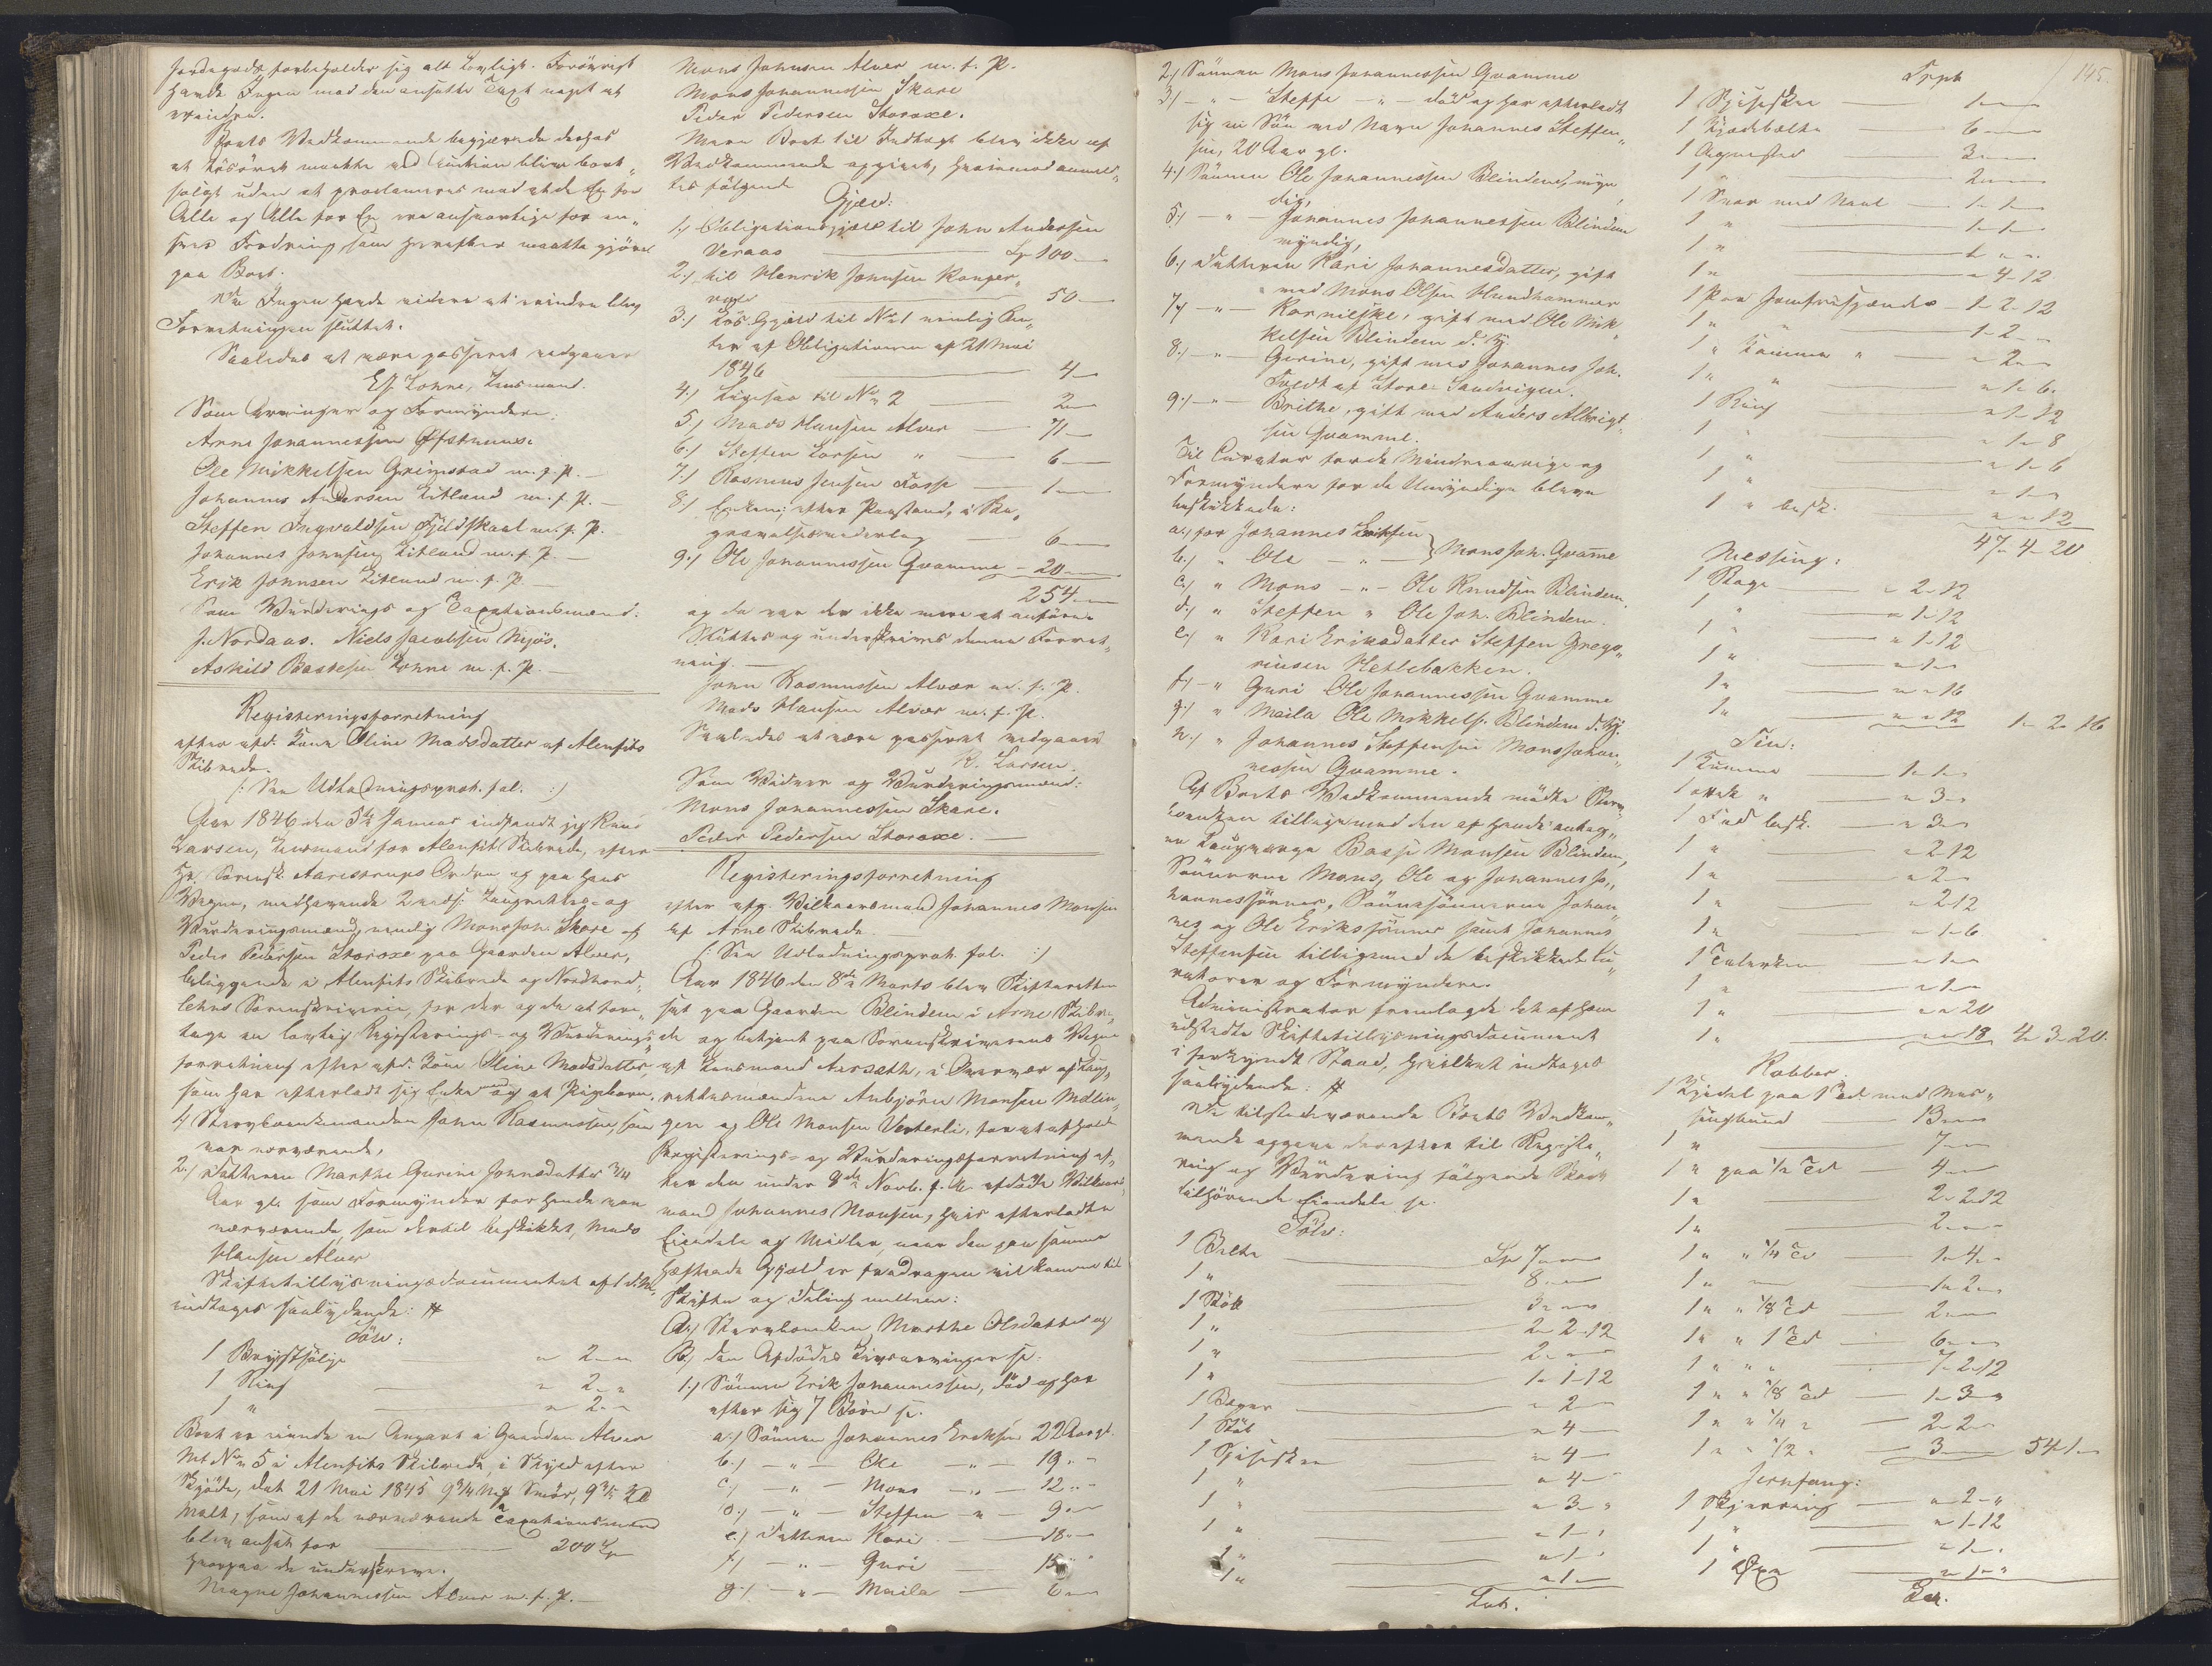 Jordegods forbeholder sig alt Lovligt. Forøvrigt
havde Ingen mod den ansatte Taxt noget at
erindre.
Boets Vedkommende begjærede derhos
at Løsøret maatte ved Auction blive bort„
solgt uden at proclameres mod at de En for
Alle og Alle for En ere ansvarlige for en„
hver Fordring som herefter maatte gjøres
paa Boet.
Da Ingen havde videre at erindre blev
Forretningen sluttet.
Saaledes at være passeret vedgaaer
Lonne, Lensmand.
Som Arvinger og Formyndere:
Arne Johannessen
Ole Mikkelsen Grimstad m. f. P.
Johannes Andersen Litland m. f. P.
Steffen Ingvaldsen Fjeldskaal m. f. P.
Johannes Johnsen Litland m. f. P.
Erik Johnsen Litland m. f. P.
Som Vurderings og Taxationsmænd:
J. Nordaas. Niels Jacobsen Mjøs.
Askild Bastesen Lonne m. f. P.
Registeringsforretning
efter afd. Kone Oline Madsdatter af Alenfits
Skibrede.
(: See Udlodningsprot. fol. :)
Aar 1846 den 5te Januar indfandt jeg
Larsen, Lensmand for Alenfit Skibrede, efter
Hr. Sorensk. Aarestrups Ordre og paa Hans
Vegne, medhavende 2 Laugrettes- og
Vurderingsmænd, nemlig Mons Joh. Skare og
Peder Pedersen Storoxe paa Gaarden Alver,
beliggende i Alenfits Skibrede og Nordhord„
lehns Sorenskriverie, for der og da at fore„
tage en lovlig Registerings- og Vurderings„
forretning efter afd. Kone Oline Madsdatter,
som har efterladt sig Enkemand og et Pigebarn.
1) Stervboenkemanden John Rasmussen, som
var nærværende,
2.) Datteren Marthe Gurine Johnsdatter 3/4
Aar gl. som Formynder for hende var
nærværende, som dertil beskikket, Mads
Hansen Alver
Skiftetillysningsdocumentet af 1 d. M.
indtages saalydende: #
Sølv:
1 Brystsølje " 2 - "
1 Ring " 2 - "
1 " " 2 - "
Boet er eiende en Anpart i Gaarden Alver
Mt No 5 i Alenfits Skibrede, i Skyld efter
Skjøde, dat 21 Mai 1845 9 3/4 Mk Smør, 9 3/5
Malt, som af de nærværende Taxationsmænd
blev ansat for 200 Sp
hvorpaa de underskrive.
Magne Johannessen Alver m. f. P.
Mons Johnsen Alver m. f. P.
Mons Johannessen Skare
Peder Pedersen Storoxe.
Mere Boet til Indtægt blev ikke af
Vedkommende opgivet, hvorimod anmel„
tes følgende
Gjæld:
1.) Obligationsgjæld til John Andersen
Veraas Sp 100
2.) til Henrik Johnsen
50
3.) Løs Gjæld til No 1 nemlig Ren„
ter af Obligationen af 21 Mai
1846 4
4.) Ligesaa til No 2 2
5.) Mads Hansen Alver 71
6.) Steffen Larsen " 6
7.) Rasmus Jensen Fosse 1
8.) Enkem. efter Paastand, i Be„
gravelsesvederlag 6
9.) Ole Johannessen Qvamme 20
254
og da var der ikke mere at anføre.
Sluttes og underskrives denne Forret„
ning.
John Rasmussen Alver m. f. P.
Mads Hansen Alver m. f. P.
Saaledes at være passeret vedgaaes
R. Larsen.
Som Vidner og Vurderingsmænd:
Mons Johannessen Skare.
Peder Pedersen Storoxe.
Registeringsforretning
efter afg. Vilkaarsmand Johannes Monsen
af Arne Skibrede.
(: See Udlodningsprot. fol. :)
Aar 1846 den 8de Marts blev Skifteretten
sat paa Gaarden Blindem i Arne Skibre„
de og betjent paa Sorenskriverens Vegne
af Lensmand Aarseth, i Overvær af Laug„
rettesmændene Anbjörn Monsen Mellin„
gen og Ole Monsen Vesterli, for at afholde
Registerings- og Vurderingsforretning ef„
ter den under 9de Novb. f. A. afdøde Vilkaars„
mand Johannes Monsen, hvis efterladte
Eiendele og Midler, naar den paa samme
hæftende Gjæld er fradragen vil komme til
Skifte og Deling mellem:
A.) Stervboenken Marthe Olsdatter og
B.) den Afdødes Livsarvinger se:
1.) Sønnen Erik Johannessen, død og har
efter sig 7 Børn se.
a.) Sønnen Johannes Eriksen 22 Aar gl.
b.) - " - Ole - " - 19 " -
c.) - " - Mons - " - 12 " -
d.) - " - Steffen - " - 9 " -
e.) Datteren Kari - 18 " -
f.) - " - Guri - 15 " -
g.) - " - Maila - 6 " -
2.) Sønnen Mons Johannessen Qvamme
3.) - " - Steffe - " - død og har efterladt
sig en Søn ved Navn Johannes Steffen„
sen, 20 Aar gl.
4.) Sønnen Ole Johannessen Blindem, myn„
dig,
5.) - " - Johannes Johannessen Blindem
myndig,
6.) Datteren Kari Johannesdatter, gift
med Mons Olsen Hundhammer
7.) - " - Kornilske, gift med Ole Mik„
kelsen Blindem d. y.
8.) - " - Gurine, gift med Johannes Joh.
Tvedt af Store Sandvigen.
9.) - " - Brithe, gift med Anders Albrigt„
sen Qvamme.
Til Curator for de Mindreaarige og
Formyndere for de Umyndige bleve
beskikkede:
a.) for Johannes Eriksen
b.) " Ole - " - } Mons Joh. Qvamme
c.) " Mons - " - Ole Knudsen Blindem.
d.) " Steffen " Ole Joh. Blindem.
e.) " Kari Eriksdatter Steffen Grego„
riusen Hetlebakken.
f.) - " Guri Ole Johannessen Qvamme
g.) " Maila Ole Mikkels. Blindem d. y.
h.) " Johannes Steffensen Mons Johan„
nessen Qvamme.
Af Boets Vedkommende mødte Sterv„
boenken tilligemed den af hende antag„
ne Laugværge Basse Monsen Blindem,
Sønnerne Mons, Ole og Johannes Jo„
hannessønner, Sønnesønnerne Johan„
nes og Ole Erikssønner samt Johannes
Steffensen tilligemed de beskikkede Cu„
ratorer og Formyndere.
Administrator fremlagde det af ham
udstedte Skiftetillysningsdocument
i forkyndt Stand, hvilket indtages
saalydende: #
De tilstedeværende Boets Vedkom„
mende opgave derefter til Registe„
ring og Vurdering følgende Boet
tilhørende Eiendele se.
Sølv:
1 Belte Sp 7 - " - "
1 " 8 - " - "
1 Støb 3 - " - "
1 " 2 - 2 - 12
1 " 2 - " - "
1 " 1 - 1 - 12
1 Bæger " 2 - "
1 Støb " 4 - "
1 Spiseskee " 4 - "
1 " " 4 - "
1 " " 3 - "
1 " " 1 - "
1 " " 1 - "
1 " " 1 - "
Lat.
145.
Trpt
1 Spiseskee 1 - "
1 6 - "
1 Agnusted 3 - "
1 " 2 - "
1 Snor med Naal 1 - 1 - "
1 " 1 - 1 - "
1 " 1 - " - "
1 " " 4 - 12
1 Par Jomfruspænder 1 - 2 - 12
1 " " 1 - 2 - "
1 " " " 2 - "
1 " " " 1 - 6
1 Ring " 1 - 12
1 " " 1 - 8
1 " " 1 - 6
1 " " 1 - "
1 " besk. " " 12
47 - 4 - 20
Messing:
1 Stage " 2 - 12
1 " " 1 - 12
1 " " 1 - 12
1 " " 1 - "
1 " " " 16
1 " " " 12 1 - 2 - 16
Tin:
1 Kumme 1 - 1 - "
1 " " 3 - "
1 Fad besk. " 3 - "
1 " " 2 - 12
1 " " 2 - "
1 " " 2 - 12
1 " " 1 - 6
1 Talerken " 1 - "
1 " " 1 - "
1 " " " 20
1 " " " 18 4 - 3 - 20.
Kobber.
1 Kjedel paa 1 Td med Mes„
singbund 13 - "
1 " 7 - "
1 " paa 1/2 Td 4 - "
1 " 2 - 2 - 12
1 " 2 - " - "
1 " " 1/4 Td 1 - 4 - "
1 " 1 - 2 - "
1 " " 1/8 Td 2 - " - "
1 " " 1 Td 6 - " - "
1 " " " 7 - 2 - 12
1 " " 1/8 Td 1 - 3 - "
1 " " 1/4 " 2 - 2 - "
1 " " 1/2 " 3 - " 54 - 1 - "
Jernfang:
1 Skjerding " 2 - "
1 " " 1 - 12
1 " " 1 - "
1 Øxe " 1 - "
Lat.